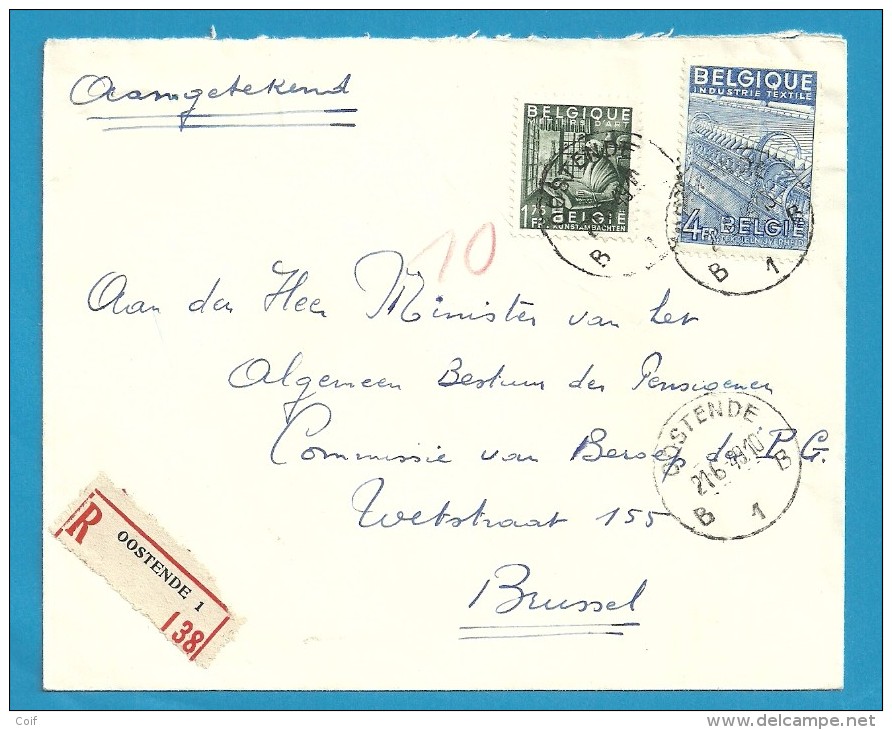 Aangetekend
BELGIQUE
1 75 FR BELGIË
KUNSTAMBACHTEN
BELGIQUE
INDUSTRIE TEXTILE
4 FR BELGIË
OOSTENDE
B
B 1
10
Aan den Heer Minister van het
Algemeen Bestuur der Pensioenen
Commissie van Beroep der P.G.
Wetstraat 155
Brussel
OOSTENDE
21 6 49 10
B 1 B
R OOSTENDE 1
138
Coif
www.delcampe.net